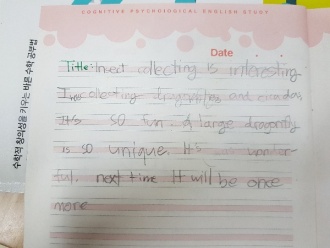 COGNITIVE PSYCHOLOGICAL ENGLISH STUDY
Date . .
수학적 창의성을 키우는 바른 수학 공부법
Title: Insect collecting is interesting
I collecting dragonflies and cicadas
It's so fun. A large dragonfly
is so unique. It's is wonder-
ful. next time It will be once
more